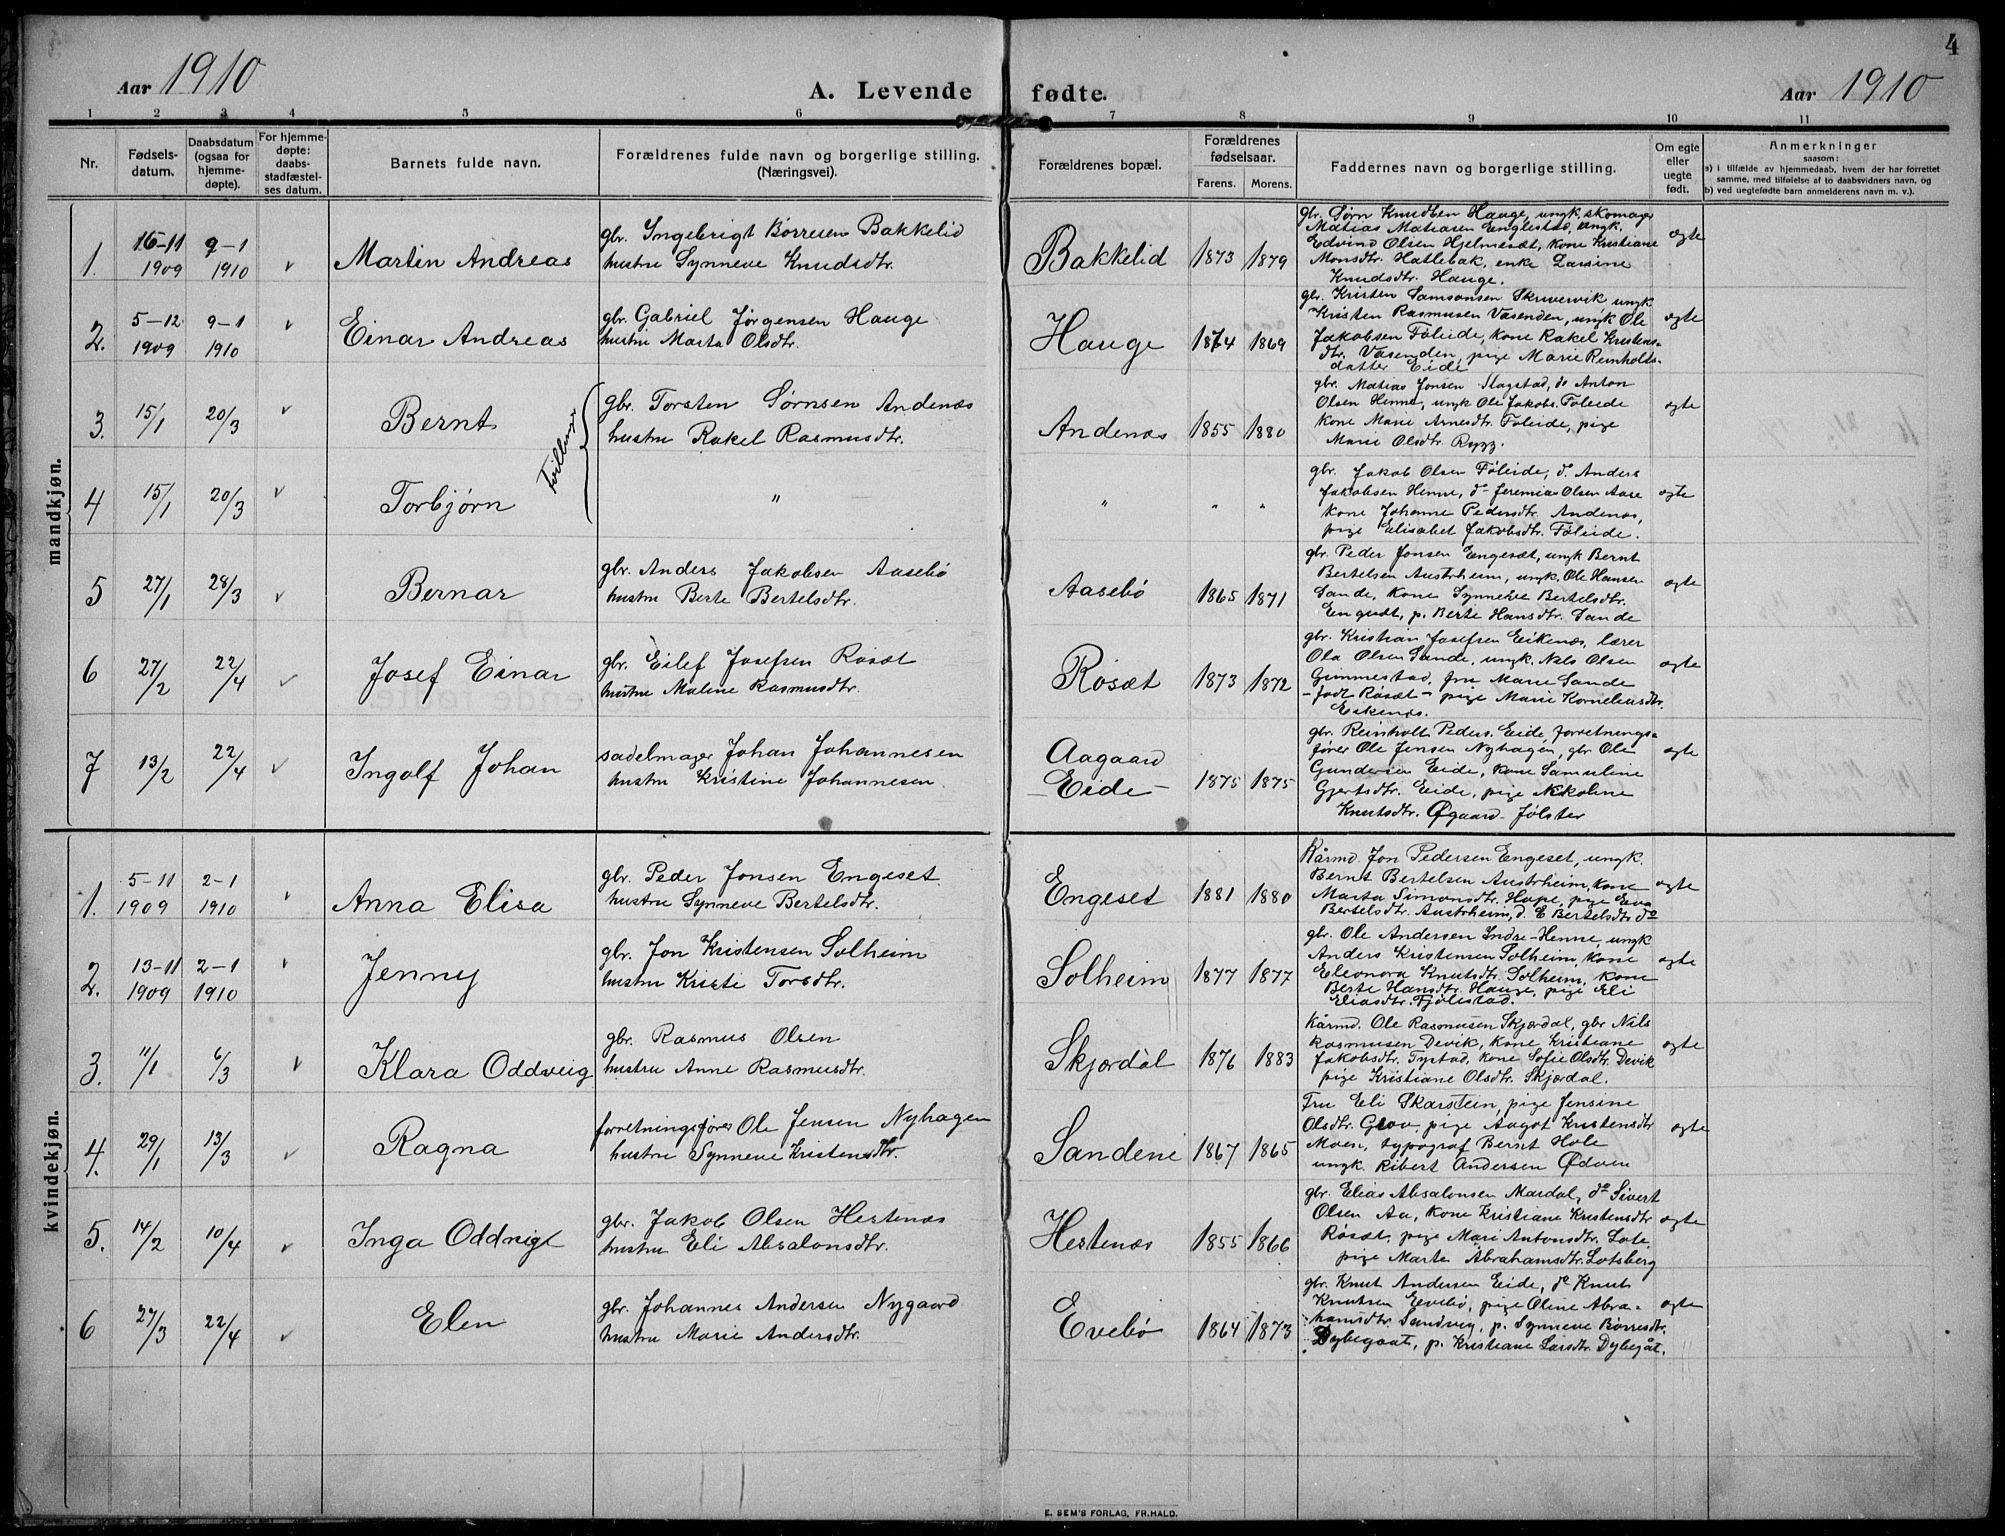 4
Aar 1910
A. Levende fødte.
Aar 1910
1 2 3 4 5 6 7 8 9 10 11
Nr.
Fødsels-
datum.
Daabsdatum
(ogsaa for
hjemme-
døpte).
For hjemme-
døpte:
daabs-
stadfæstel-
ses datum.
Barnets fulde navn.
Forældrenes fulde navn og borgerlige stilling.
(Næringsvei).
Forældrenes bopæl.
Forældrenes
fødselsaar.
Farens. Morens.
Faddernes navn og borgerlige stilling.
Om egte
eller
uegte
født.
Anmerkninger
saasom:
a) i tilfælde av hjemmedaab, hvem der har forrettet
samme, med tilføielse af to daabsvidners navn, og
b) ved uegtefødte barn anmelderens navn m. v.).
mandkjøn.
1. 16-11 1909 9-1 1910 Martin Andreas
gbr. Ingebrigt Børresen Bakkelid
hustru Synneve Knudsdtr.
Bakkelid 1873 1879
gbr. Sørn Knudsen Hauge, ungk. skomager
Matias Matiasen Englestad, ungk.
Edvind Olsen Hjelmesæt, kone Kristiane
Monsdtr. Hatlebak, enke Larsine
Knudsdtr. Hauge.
egte
2. 5-12 1909 9-1 1910 Einar Andreas
gbr. Gabriel Jørgensen Hauge
hustru Marta Olsdtr.
Hauge 1874 1869
gbr. Kristen Samsonsen Skrivervik ungk
Kristen Rasmusen Vasenden, ungk Ole
Jakobsen Føleide, kone Rakel Kristens-
dtr. Vasenden, pige Marie Reinholts-
datter Eide
egte
3. 15/1 20/3 Bernt
Tvillinger
gbr. Torsten Sørnsen Andenæs
hustru Rakel Rasmusdtr.
Andenæs 1855 1880
gbr. Matias Jonsen Slagstad, do Anton
Olsen Henne, ungk Ole Jakobs. Føleide
kone Marie Arnesdtr. Føleide, pige
Marie Olsdtr. Rygg.
egte
4 15/1 20/3 Torbjørn
" " " "
gbr. Jakob Olsen Føleide, do Anders
Jakobsen Henne, do Jeremias Olsen Aase
kone Johanne Pedersdtr. Andenæs,
pige Elisabet Jakobsdtr. Føleide.
egte
5 27/1 28/3 Bernar
gbr. Anders Jakobsen Aasebø
hustru Berte Bertelsdtr.
Aasebø 1865 1871
gbr. Peder Jonsen Engesæt, ungk Bernt
Bertelsen Austrheim, ungk. Ole Hansen
Sande, kone Synneve Bertelsdtr.
Engesæt, p. Berte Hansdtr. Sande
egte
6 27/2 22/4 Josef Einar
gbr. Eilef Josefsen Røsæt
hustru Maline Rasmusdtr.
Røsæt 1873 1872
gbr. Kristian Josefsen Eikenæs, lærer
Ola Olsen Sande, ungk. Nils Olsen
Gimmestad, fru Marie Sande
- født Røsæt - pige Marie Korneliusdtr.
Eikenæs.
egte
7 13/2 22/4 Ingolf Johan
sadelmager Johan Johannesen
hustru Kristine Johannesen
Aagaard
- Eide - 1875 1875
gbr. Reinholt Peders. Eide, forretnings-
fører Ole Jensen Nyhagen, gbr Ole
Gundersen Eide, kone Samuline
Gjertsdtr. Eide, pige Nikoline
Knutsdtr. Øgaard - Jølster
egte
kvindekjøn.
1. 5-11 1909 2-1 1910 Anna Elisa
gbr. Peder Jonsen Engeset
hustru Synneve Bertelsdtr.
Engeset 1881 1880
Kårmd. Jon Pedersen Engeset, ungk.
Bernt Bertelsen Austrheim, kone
Marta Simonsdtr. Hope, pige Eva
Bertelsdtr. Austrheim, d. E Bertelsdtr do
egte
2. 13-11 1909 2-1 1910 Jenny
gbr. Jon Kristensen Solheim
hustru Kristi Torsdtr.
Solheim 1877 1877
gbr. Ole Andersen Indre-Henne, ungk
Anders Kristensen Solheim, kone
Eleonora Knutsdtr. Solheim, kone
Berte Hansdtr. Hauge, pige Eli
Eliasdtr. Fjølestad.
egte
3. 11/1 6/3 Klara Oddveig
gbr. Rasmus Olsen
hustru Anne Rasmusdtr.
Skjærdal 1876 1883
Kårmd. Ole Rasmusen Skjærdal, gbr Nils
Rasmusen Devik, kone Kristiane
Jakobsdtr. Tystad, kone Sofie Olsdtr. Devik
pige Kristiane Olsdtr. Skjærdal.
egte
4. 29/1 13/3 Ragna
forretningsfører Ole Jensen Nyhagen
hustru Synneve Kristensdtr.
Sandene 1867 1865
Fru Eli Skarstein, pige Jensine
Olsdtr. Glov, pige Aagot Kristensdtr
Moen, typograf Bernt Hole
ungk. Ribert Andersen Ødven
egte
5. 14/2 10/4 Inga Oddvig
gbr. Jakob Olsen Hestenæs
hustru Eli Absalonsdtr.
Hestenæs 1855 1866
gbr. Elias Absalonsen Mardal, do Sivert
Olsen Aa, kone Kristiane Kristensdtr
Røsæt, pige Mari Antonsdtr. Lote,
pige Marte Abrahamsdtr. Lotsberg
egte
6 27/3 22/4 Elen
gbr. Johannes Andersen Nygaard
hustru Marie Andersdtr.
Evebø 1864 1873
gbr. Knut Andersen Eide, do Knut
Knutsen Evebø, pige Oline Abra-
hamsdtr. Sandvig, p. Synneve Børresdtr.
Dybegaat, p. Kristiane Larsdtr. Dybegåt.
egte
E. SEM'S FORLAG, FR.HALD.